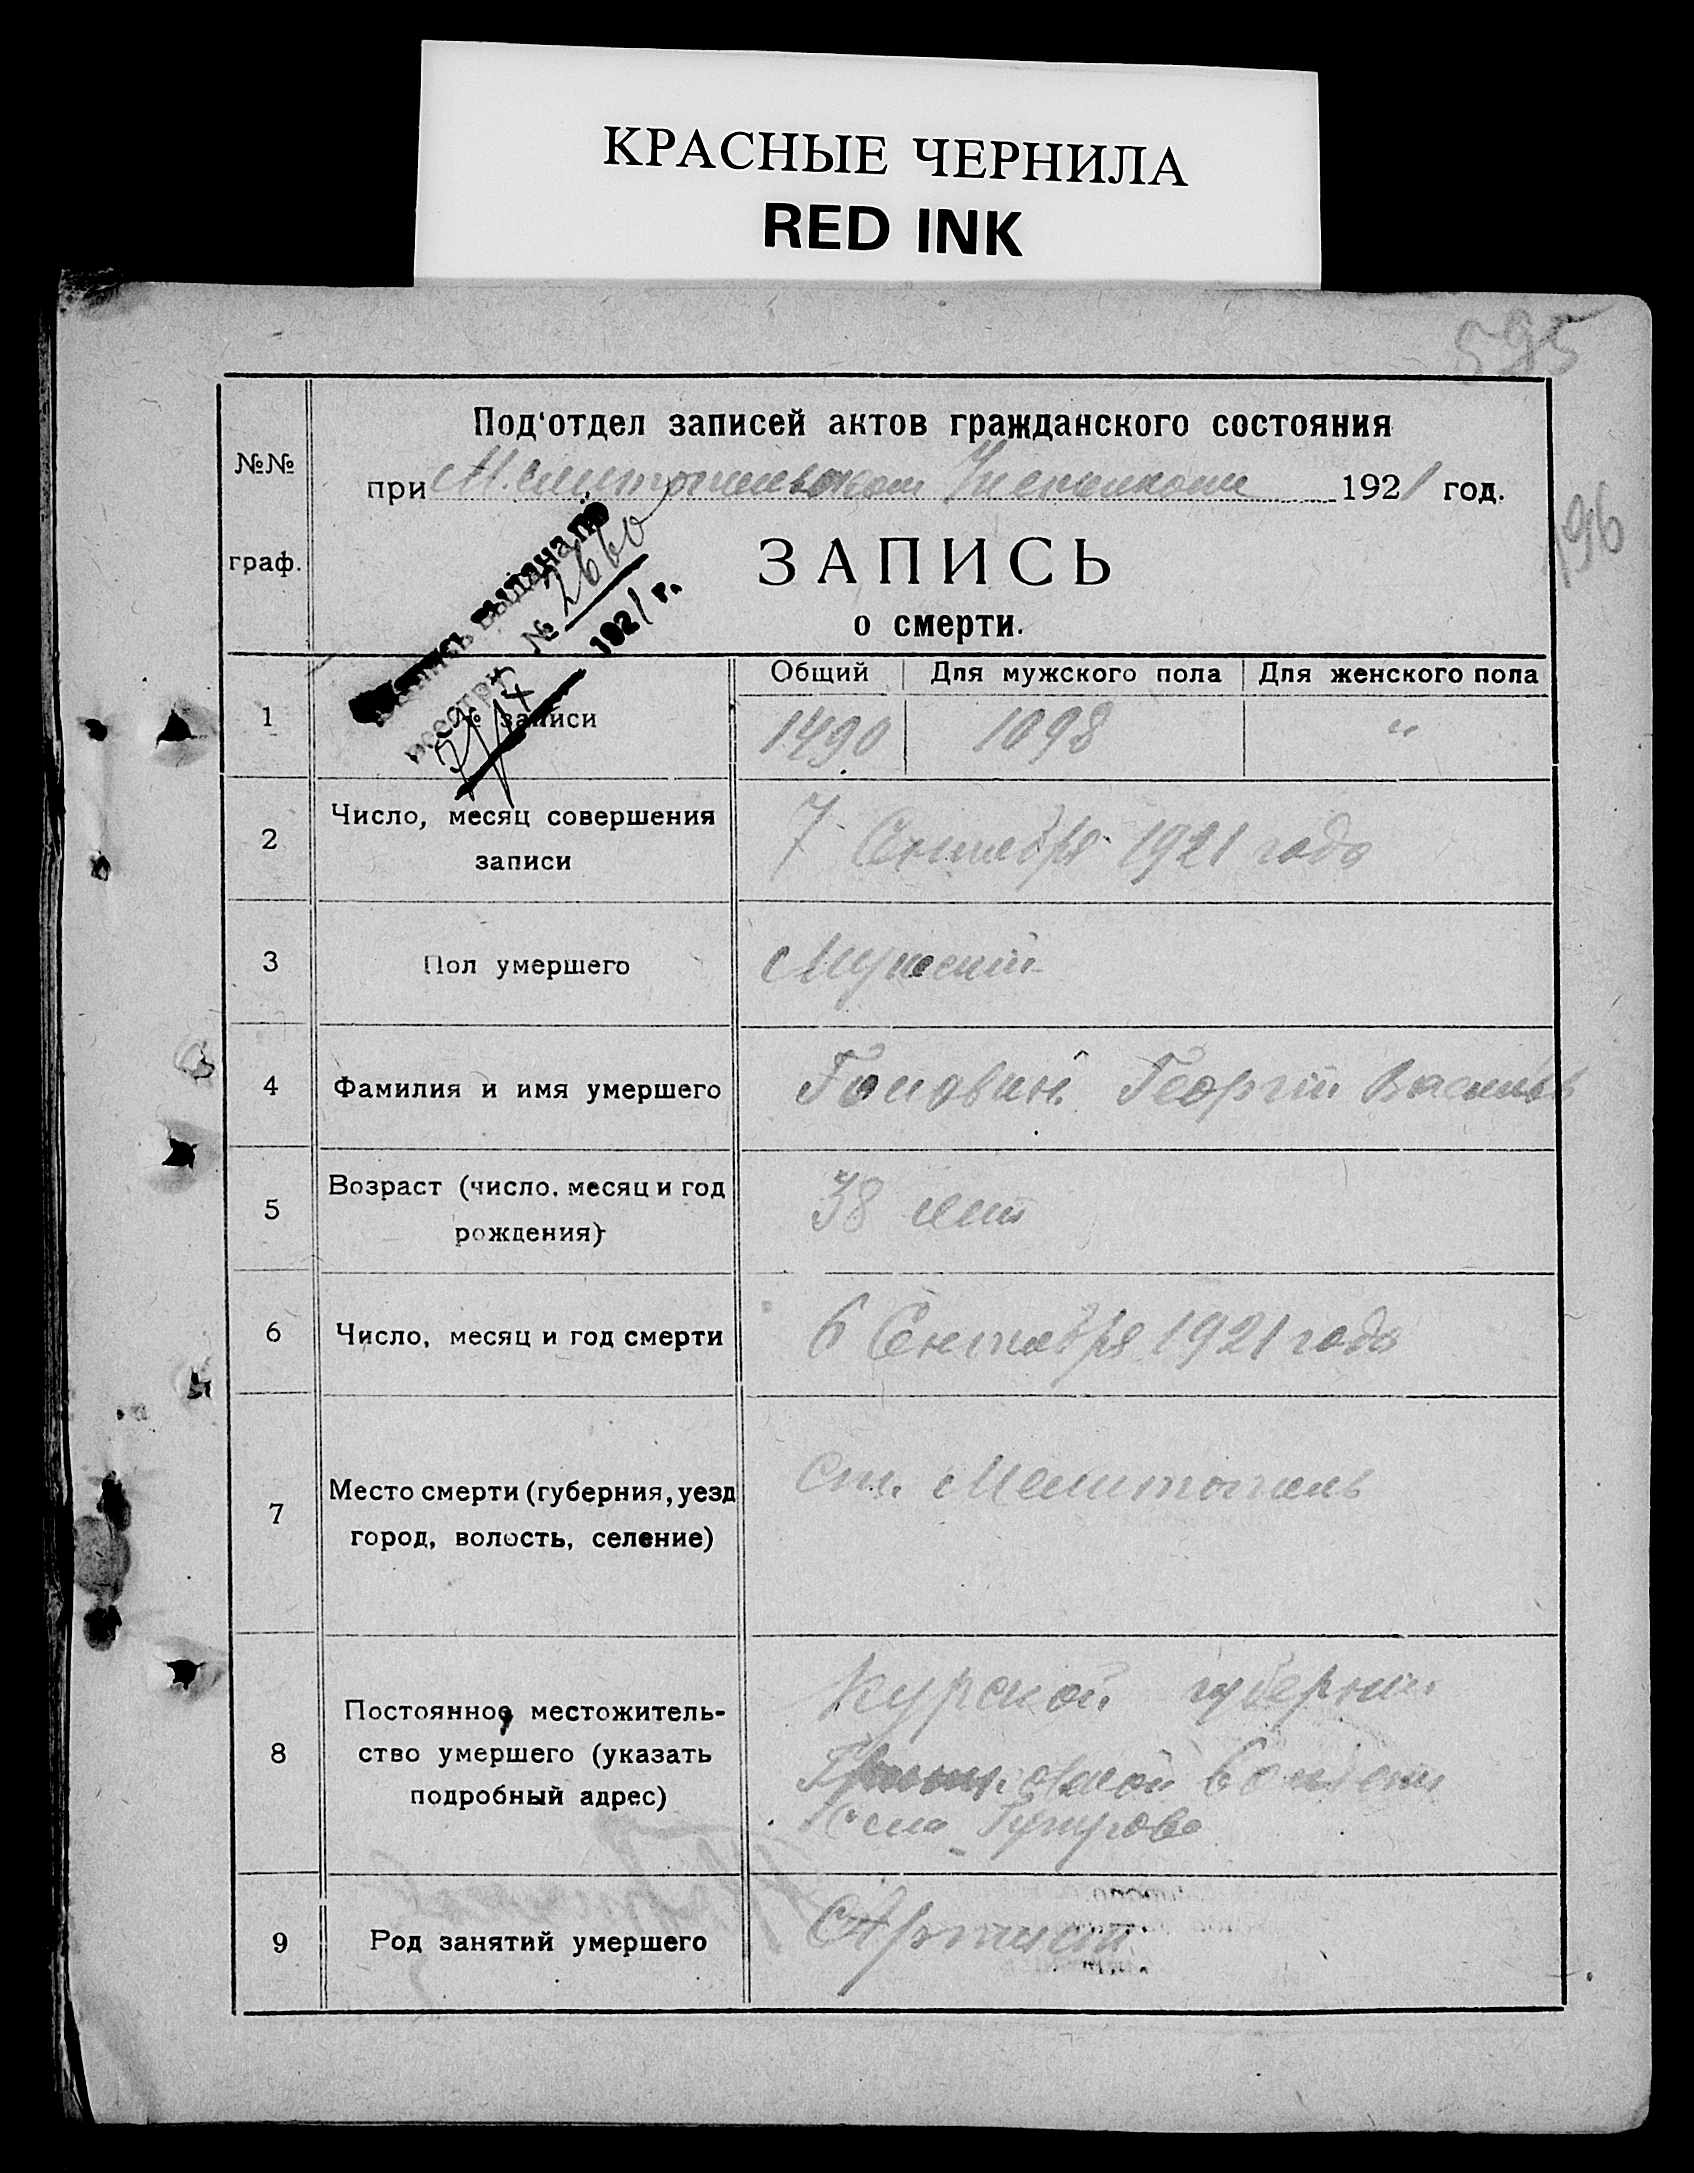 КРАСНЫЕ ЧЕРНИЛА
RED INK
595
Под'отдел записей актов гражданского состояния
№№
граф.
при Мелитопольском 1921 год.
196
ЗАПИСЬ
о смерти.
выдана по
№ 2660
1921 г.
Общий Для мужского пола Для женского пола
1 № записи 1490 1098 "
2 Число, месяц совершения
записи
7 Сентября 1921 года
3 Пол умершего Мужской
4 Фамилия и имя умершего Георгий Васильев
5 Возраст (число, месяц и год
рождения)
38 лет
6 Число, месяц и год смерти 6 Сентября 1921 года
7 Место смерти (губерния, уезд
город, волость, селение)
ст. Мелитополь
8 Постоянное местожитель-
ство умершего (указать
подробный адрес)
Курской губернии
волости
села
9 Род занятий умершего Артист